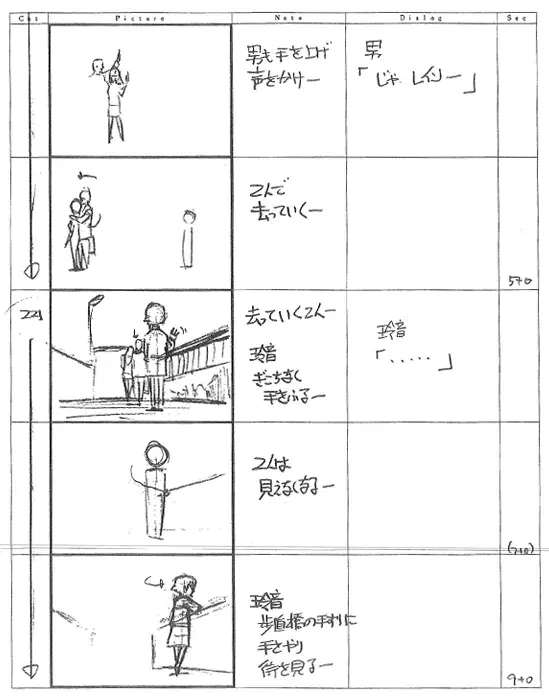 Cut Picture Note Dialog Sec
男も手を上げ
声をかけー
男
「じゃ、レインー」
2人で
去っていくー
5+0
221
去っていく2人ー
玲音
ぎこちなく
手をふるー
玲音
「・・・・・」
2人は
見えなくなるー
(7+0)
玲音
歩道橋の手すりに
手をやり
街を見るー
9+0